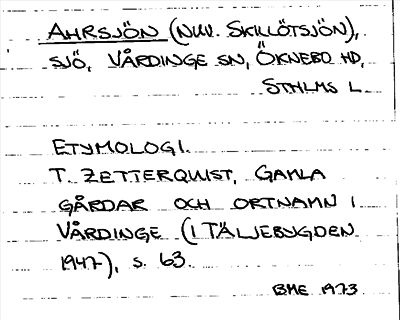 AHRSJÖN (NUV. SKILLÖTSJÖN),
SJÖ, VÅRDINGE SN, ÖKNEBO HD,
STHLMS L.
ETYMOLOGI.
T. ZETTERQVIST, GAMLA
GÅRDAR OCH ORTNAMN I
VÅRDINGE (I TÄLJEBYGDEN
1947), S. 63.
BME 1973